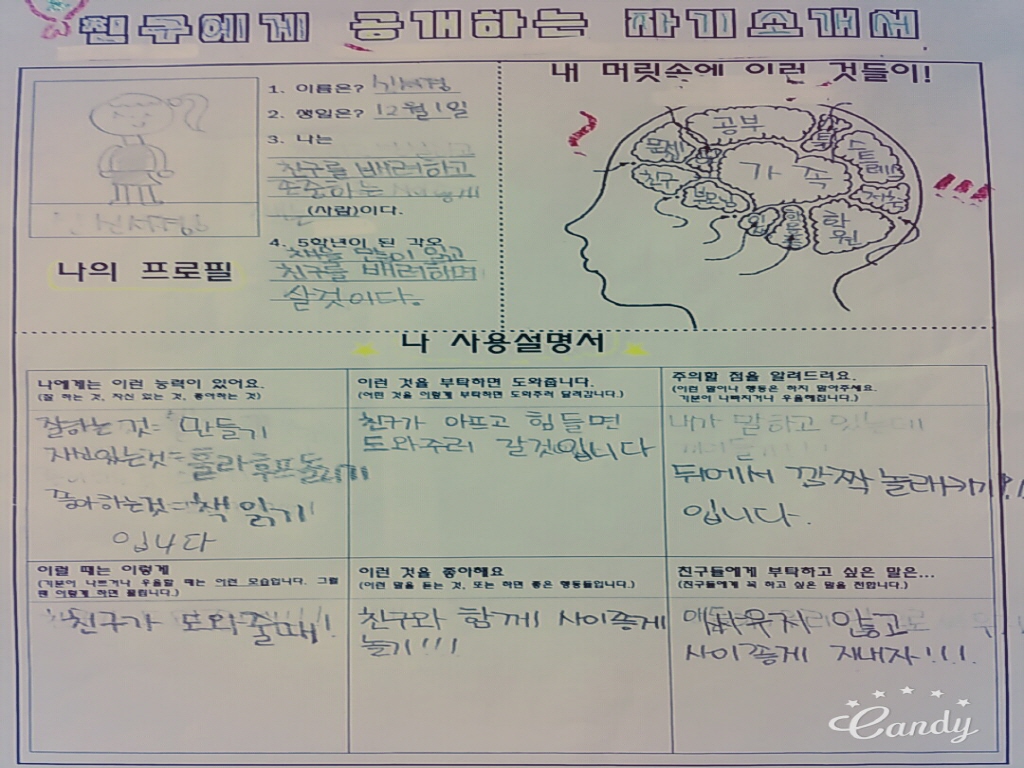 친구에게 공개하는 자기소개서
1. 이름은?
2. 생일은? 12월 1일
3. 나는
친구를 배려하고
존중하는
(사람)이다.
4. 5학년이 된 각오
책을 많이 읽고
친구를 배려하며
살것이다.
나의 프로필
내 머릿속에 이런 것들이!
공부
문제
스트레스
가족
친구
부모님
학원
나 사용설명서
나에게는 이런 능력이 있어요.
(잘 하는 것, 자신 있는 것, 좋아하는 것)
잘하는 것= 만들기
자신있는것= 훌라후프돌리기
좋아하는것= 책 읽기
입니다
이런 것을 부탁하면 도와줍니다.
(이런 것을 이렇게 부탁하면 도와주러 달려갑니다.)
친구가 아프고 힘들면
도와주러 갈것입니다
주의할 점을 알려드려요.
(이런 말이나 행동은 하지 말아주세요.
기분이 나빠지거나 우울해집니다.)
내가 말하고 있는데
뒤에서 깜짝 놀래키기!
입니다.
이럴 때는 이렇게
(기분이 나쁘거나 우울할 때는 이런 모습입니다. 그럴
땐 이렇게 하면 풀립니다.)
친구가 도와줄때!
이런 것을 좋아해요
(이런 말을 듣는 것, 또는 하면 좋은 행동들입니다.)
친구와 함께 사이좋게
놀기!!!
친구들에게 부탁하고 싶은 말은...
(친구들에게 꼭 하고 싶은 말을 전합니다.)
싸우지 않고
사이좋게 지내자!!!
Candy